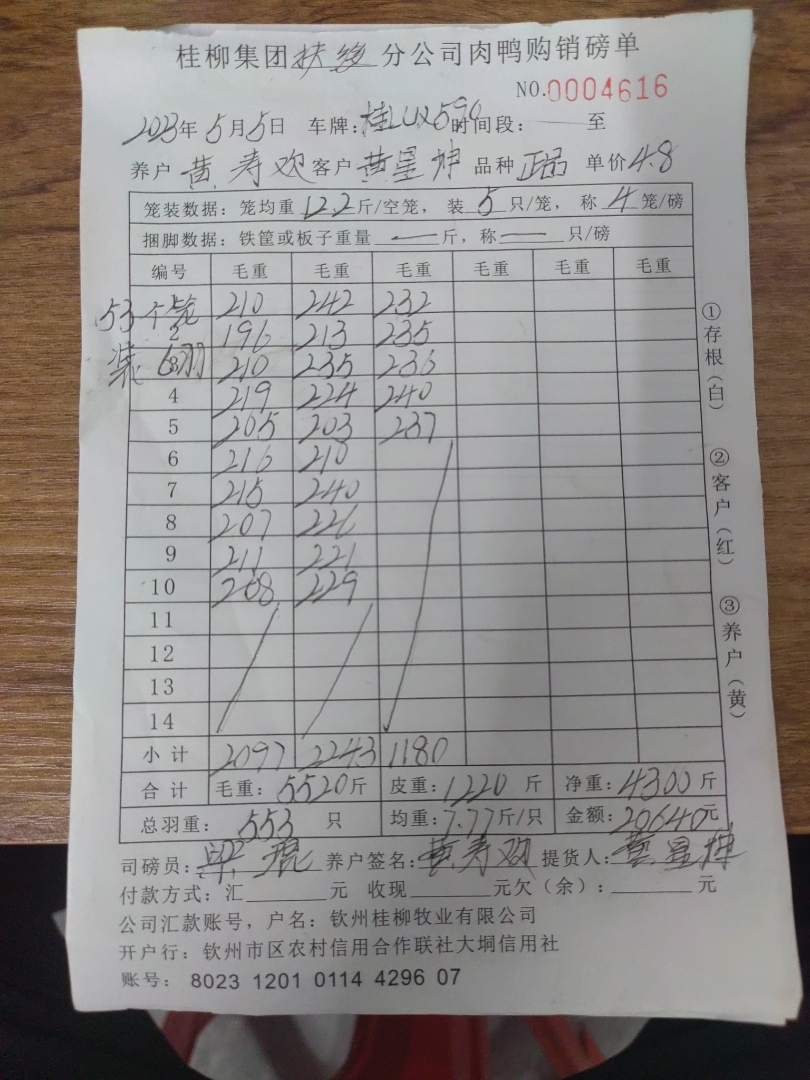 桂柳集团扶绥分公司肉鸭购销磅单
NO.0004616
2023年5月5日 车牌:桂LUX590 时间段: 至
养户 黄寿欢 客户 黄星坤 品种 正品 单价 4.8
笼装数据:笼均重 12.2 斤/空笼, 装 5 只/笼, 称 4 笼/磅
捆脚数据:铁筐或板子重量 — 斤,称 — 只/磅
编号 毛重 毛重 毛重 毛重 毛重 毛重
53个笼 210 242 232
2 196 213 235
装6羽 210 235 236
4 219 224 240
5 205 203 237
6 216 210
7 215 240
8 207 226
9 211 221
10 208 229
11
12
13
14
小计 2097 2243 1180
合计 毛重:5520斤 皮重:1220斤 净重:4300斤
总羽重: 553 只 均重:7.77斤/只 金额:20640元
司磅员: 养户签名:黄寿欢 提货人:黄星坤
付款方式:汇 元 收现 元欠(余): 元
公司汇款账号,户名:钦州桂柳牧业有限公司
开户行:钦州市区农村信用合作联社大垌信用社
账号: 8023 1201 0114 4296 07
①存根(白)
②客户(红)
③养户(黄)